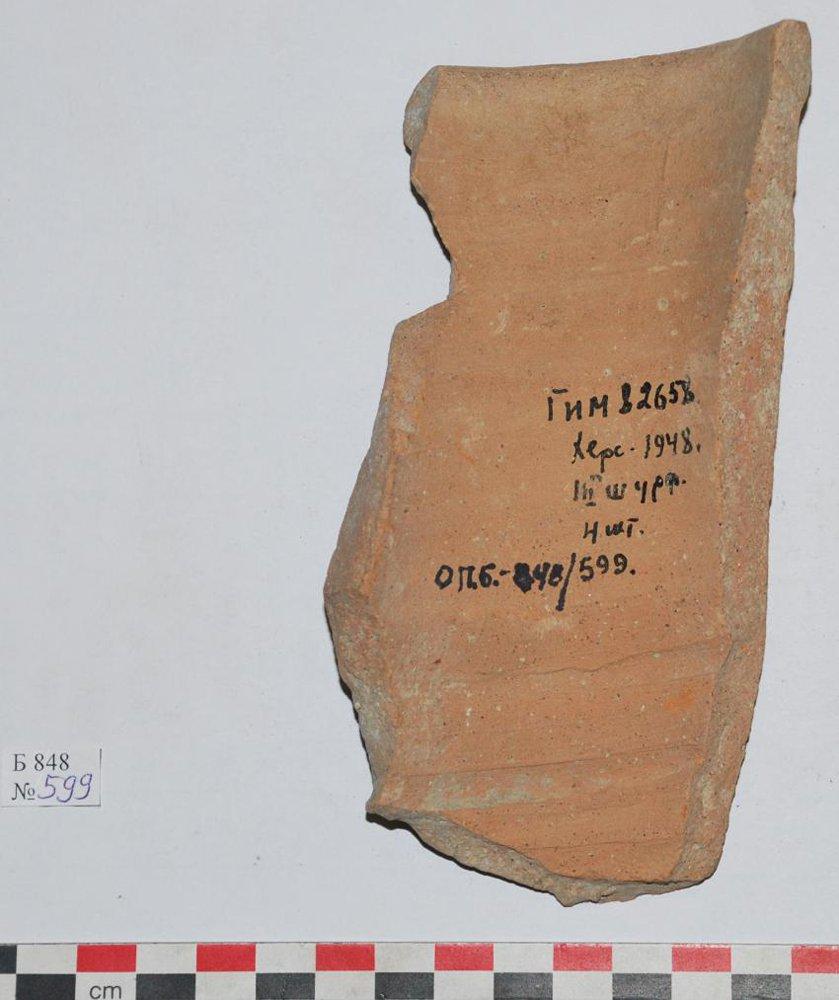 ГИМ 82658
Херс. 1948.
III шурф.
4 шт.
ОП.Б.-848/599.
Б 848
№599
cm